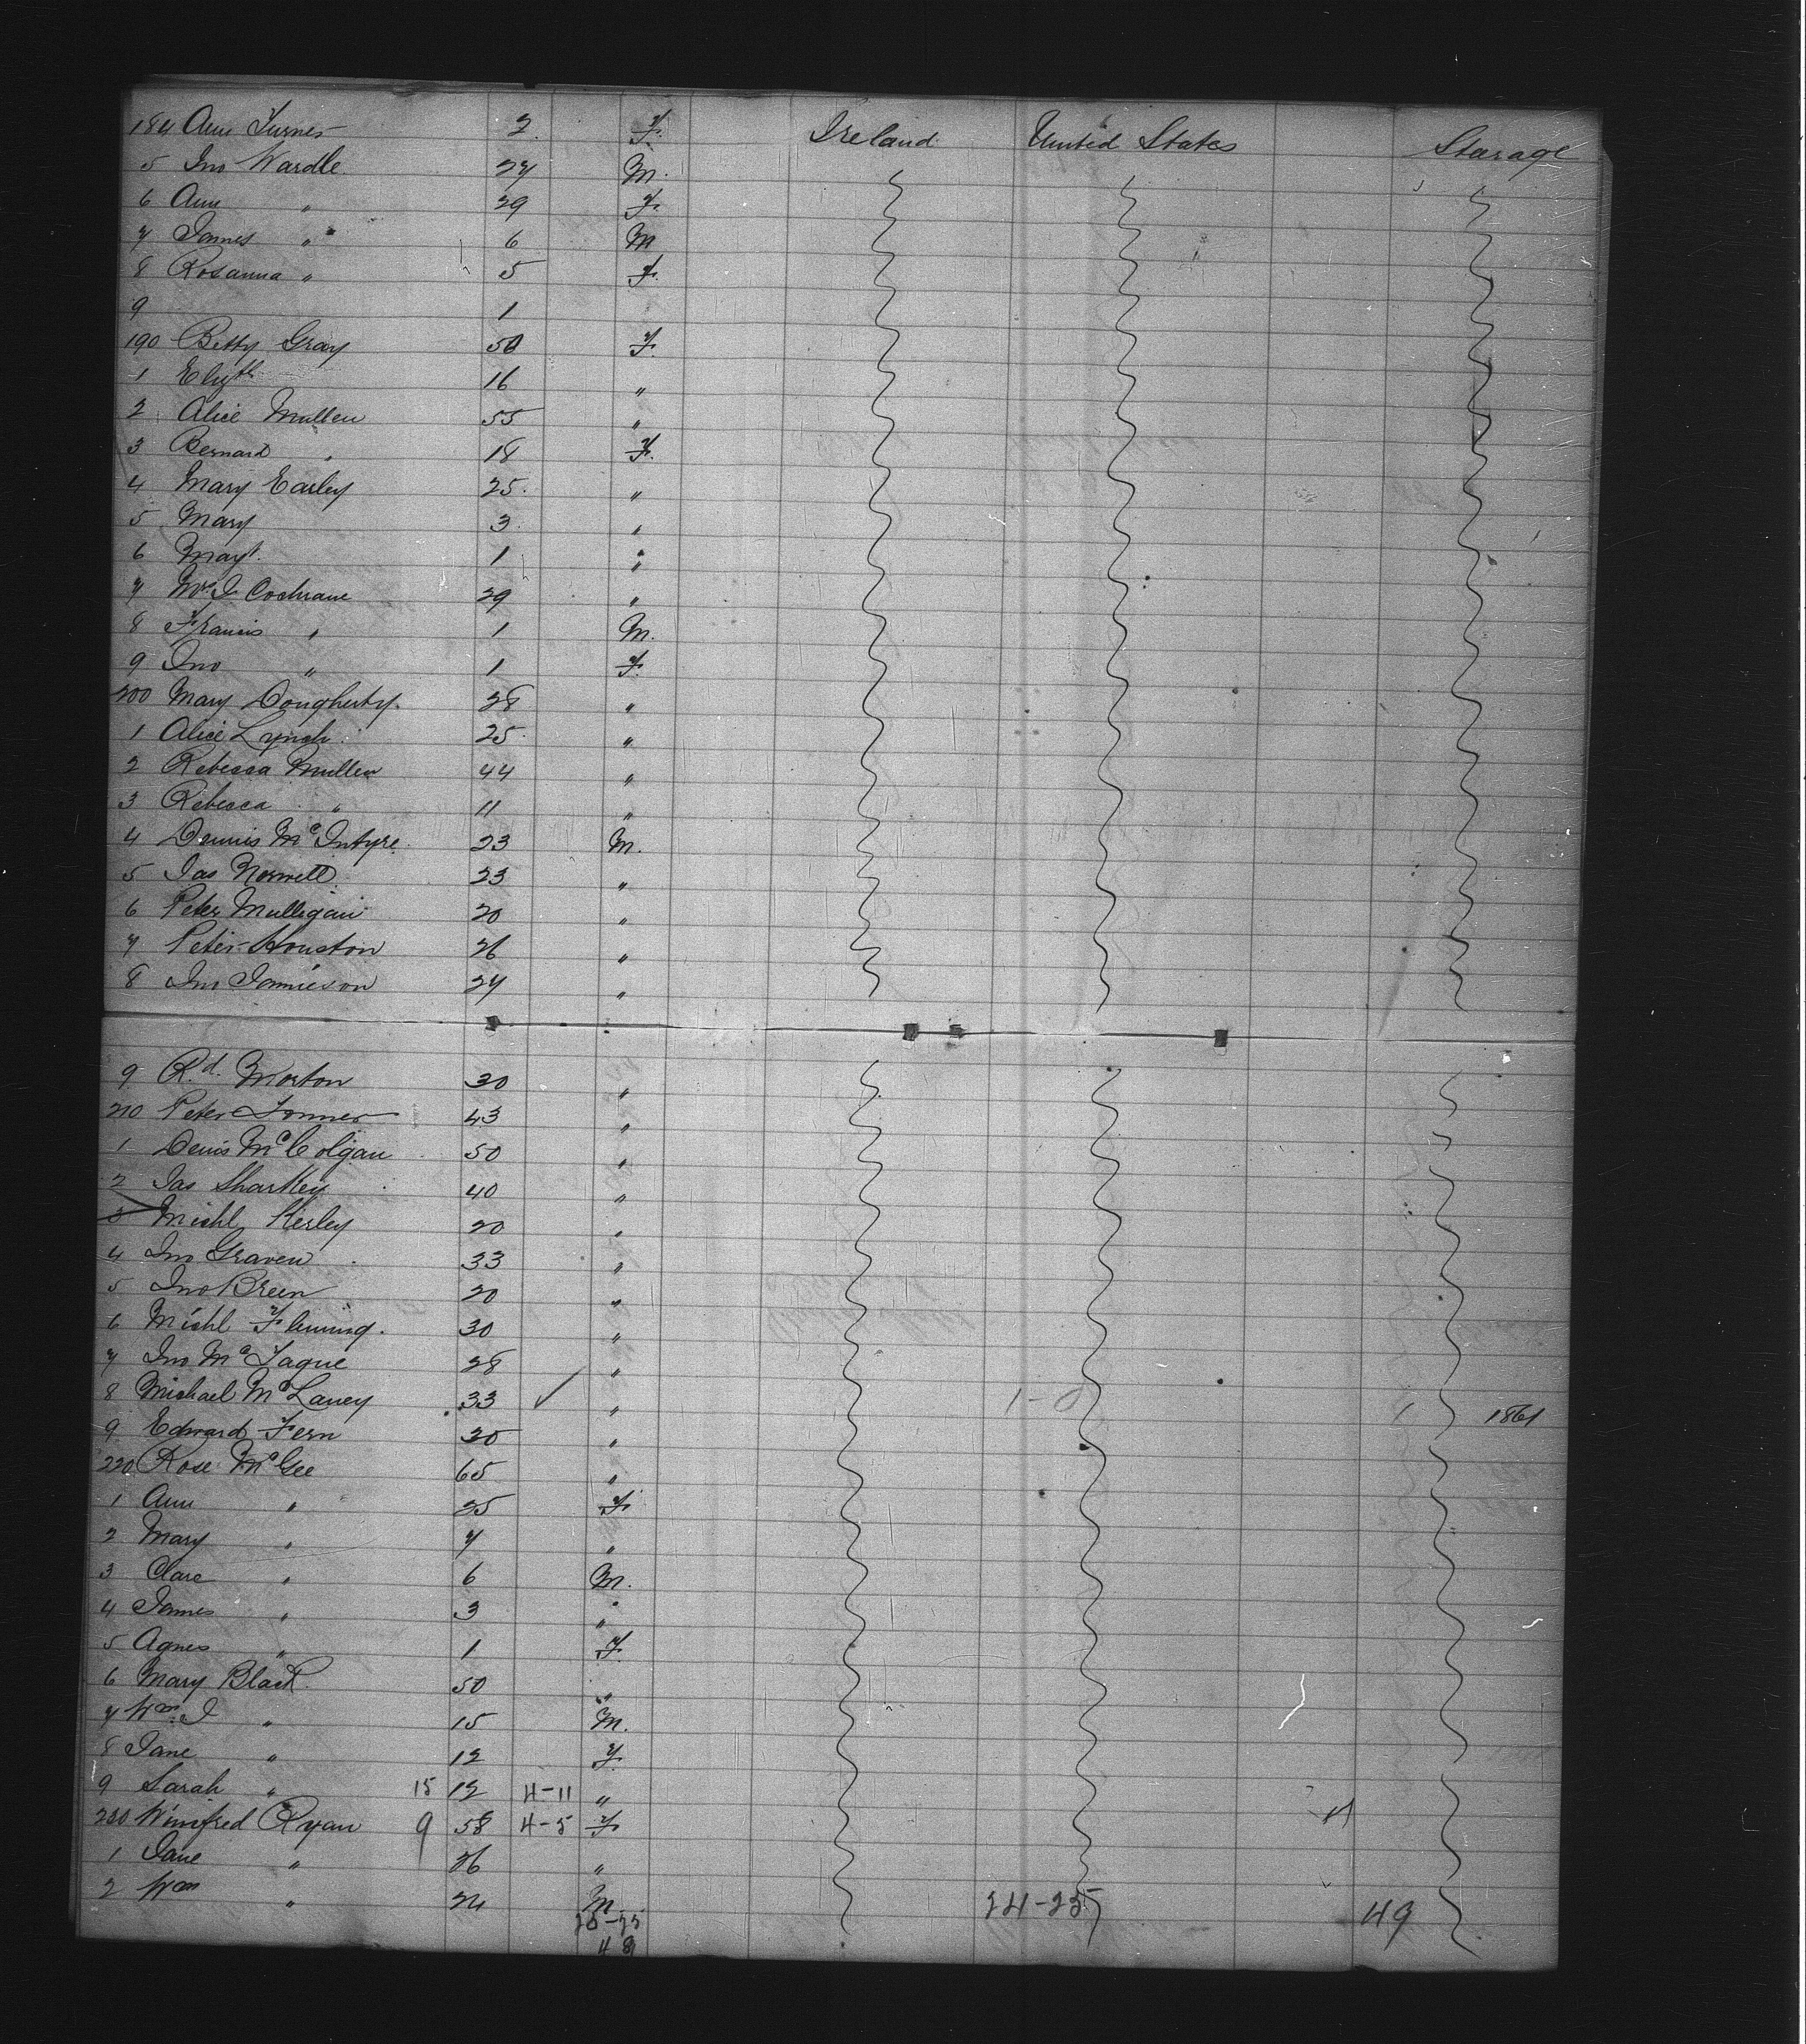 184 Ann Turner 2. F. Ireland United States Starage
5 Jno Wardle 27 M.
6 Ann " 29 F.
7 James " 6 M
8 Rosanna " 5 F.
9 1
190 Betty Gray 50 F.
1 Elizth 16 "
2 Alice Mullen 55 "
3 Bernard " 18 F.
4 Mary Earley 25. "
5 Mary 3 "
6 Mart. 1 "
7 Mrs J Cochrane 29 "
8 Francis " 1 M.
9 Jno " 1 F.
200 Mary Dougherty. 28 "
1 Alice Lynch 25. "
2 Rebecca Mullen 44 "
3 Rebecca " 11 "
4 Dennis McIntyre 23 M.
5 Jas 23 "
6 Peter Mulligan 20 "
7 Peter Houston 26 "
8 Jno Jamieson 27 "
9 Rd. Morton 30 "
210 Peter 43 "
1 Denis McColgan 50 "
2 Jas Sharkey 40 "
3 Michl Kerley 20 "
4 Jno Graven 33 "
5 Jno Breen 20 "
6 Michl Fleming. 30 "
7 Jno McTague 28 "
8 Michael McLaney 33 ✓ " 1-0 1 1861
9 Edward Fern 20 "
220 Rose McGee 65 "
1 Ann " 25 F
2 Mary " 7 "
3 Clare " 6 M.
4 James " 3 "
5 Agnes " 1 F.
6 Mary Black 50 "
7 Wm J " 15 M.
8 Jane " 12 F.
9 Sarah " 15 12 4-11 "
230 Winifred Ryan 9 58 4-5 F
1 Jane " 26 "
2 Wm " 24 M 24-25 49
25-25
48